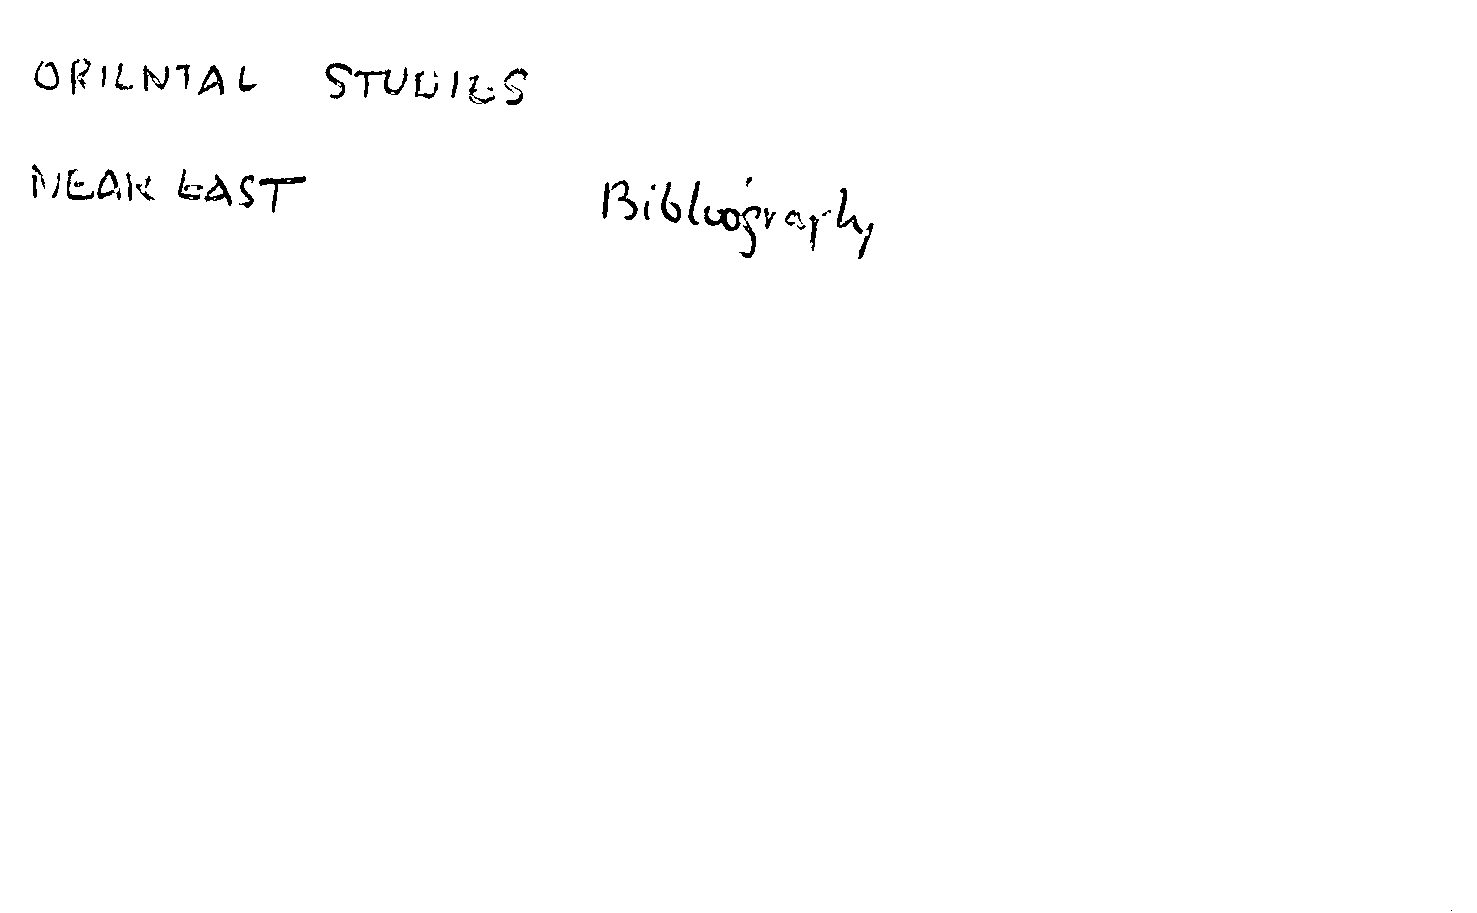 ORIENTAL STUDIES
NEAR EAST Bibliography